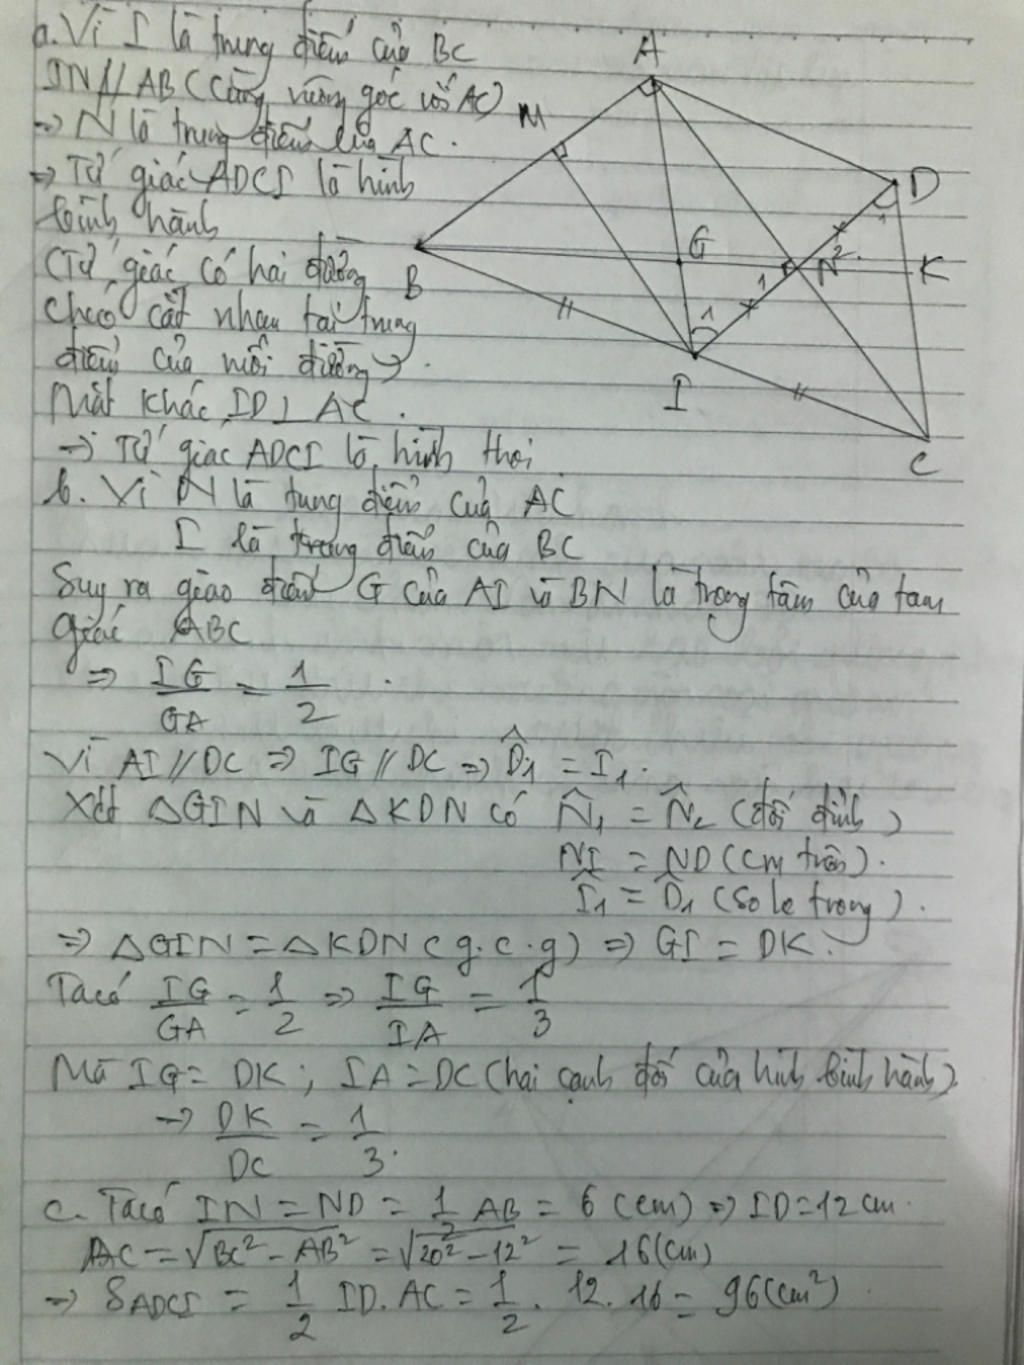 a. Vì I là trung điểm của BC
IN // AB (Cùng vuông góc với AC)
=> N là trung điểm của AC.
=> Tứ giác ADCI là hình
bình hành
(Tứ giác có hai đường
chéo cắt nhau tại trung
điểm của mỗi đường).
Mặt khác, ID ⊥ AC.
=> Tứ giác ADCI là hình thoi
A
M
D
1
G
N
2
K
B
1
1
I
C
b. Vì N là trung điểm của AC
I là trung điểm của BC
Suy ra giao điểm G của AI và BN là trọng tâm của tam
giác ABC
=> IG/GA = 1/2.
Vì AI // DC => IG // DC => D̂1 = I1.
Xét ΔGIN và ΔKDN có N̂1 = N̂2 (đối đỉnh)
NI = ND (cm trên).
Î1 = D̂1 (so le trong).
=> ΔGIN = ΔKDN (g.c.g) => GI = DK.
Ta có IG/GA = 1/2 => IG/IA = 1/3
Mà IG = DK ; IA = DC (hai cạnh đối của hình bình hành).
=> DK/DC = 1/3.
c. Ta có IN = ND = 1/2 AB = 6 (cm) => ID = 12 cm.
AC = √(BC² - AB²) = √(20² - 12²) = 16 (cm)
=> SADCI = 1/2 ID. AC = 1/2 . 12. 16 = 96 (cm²)